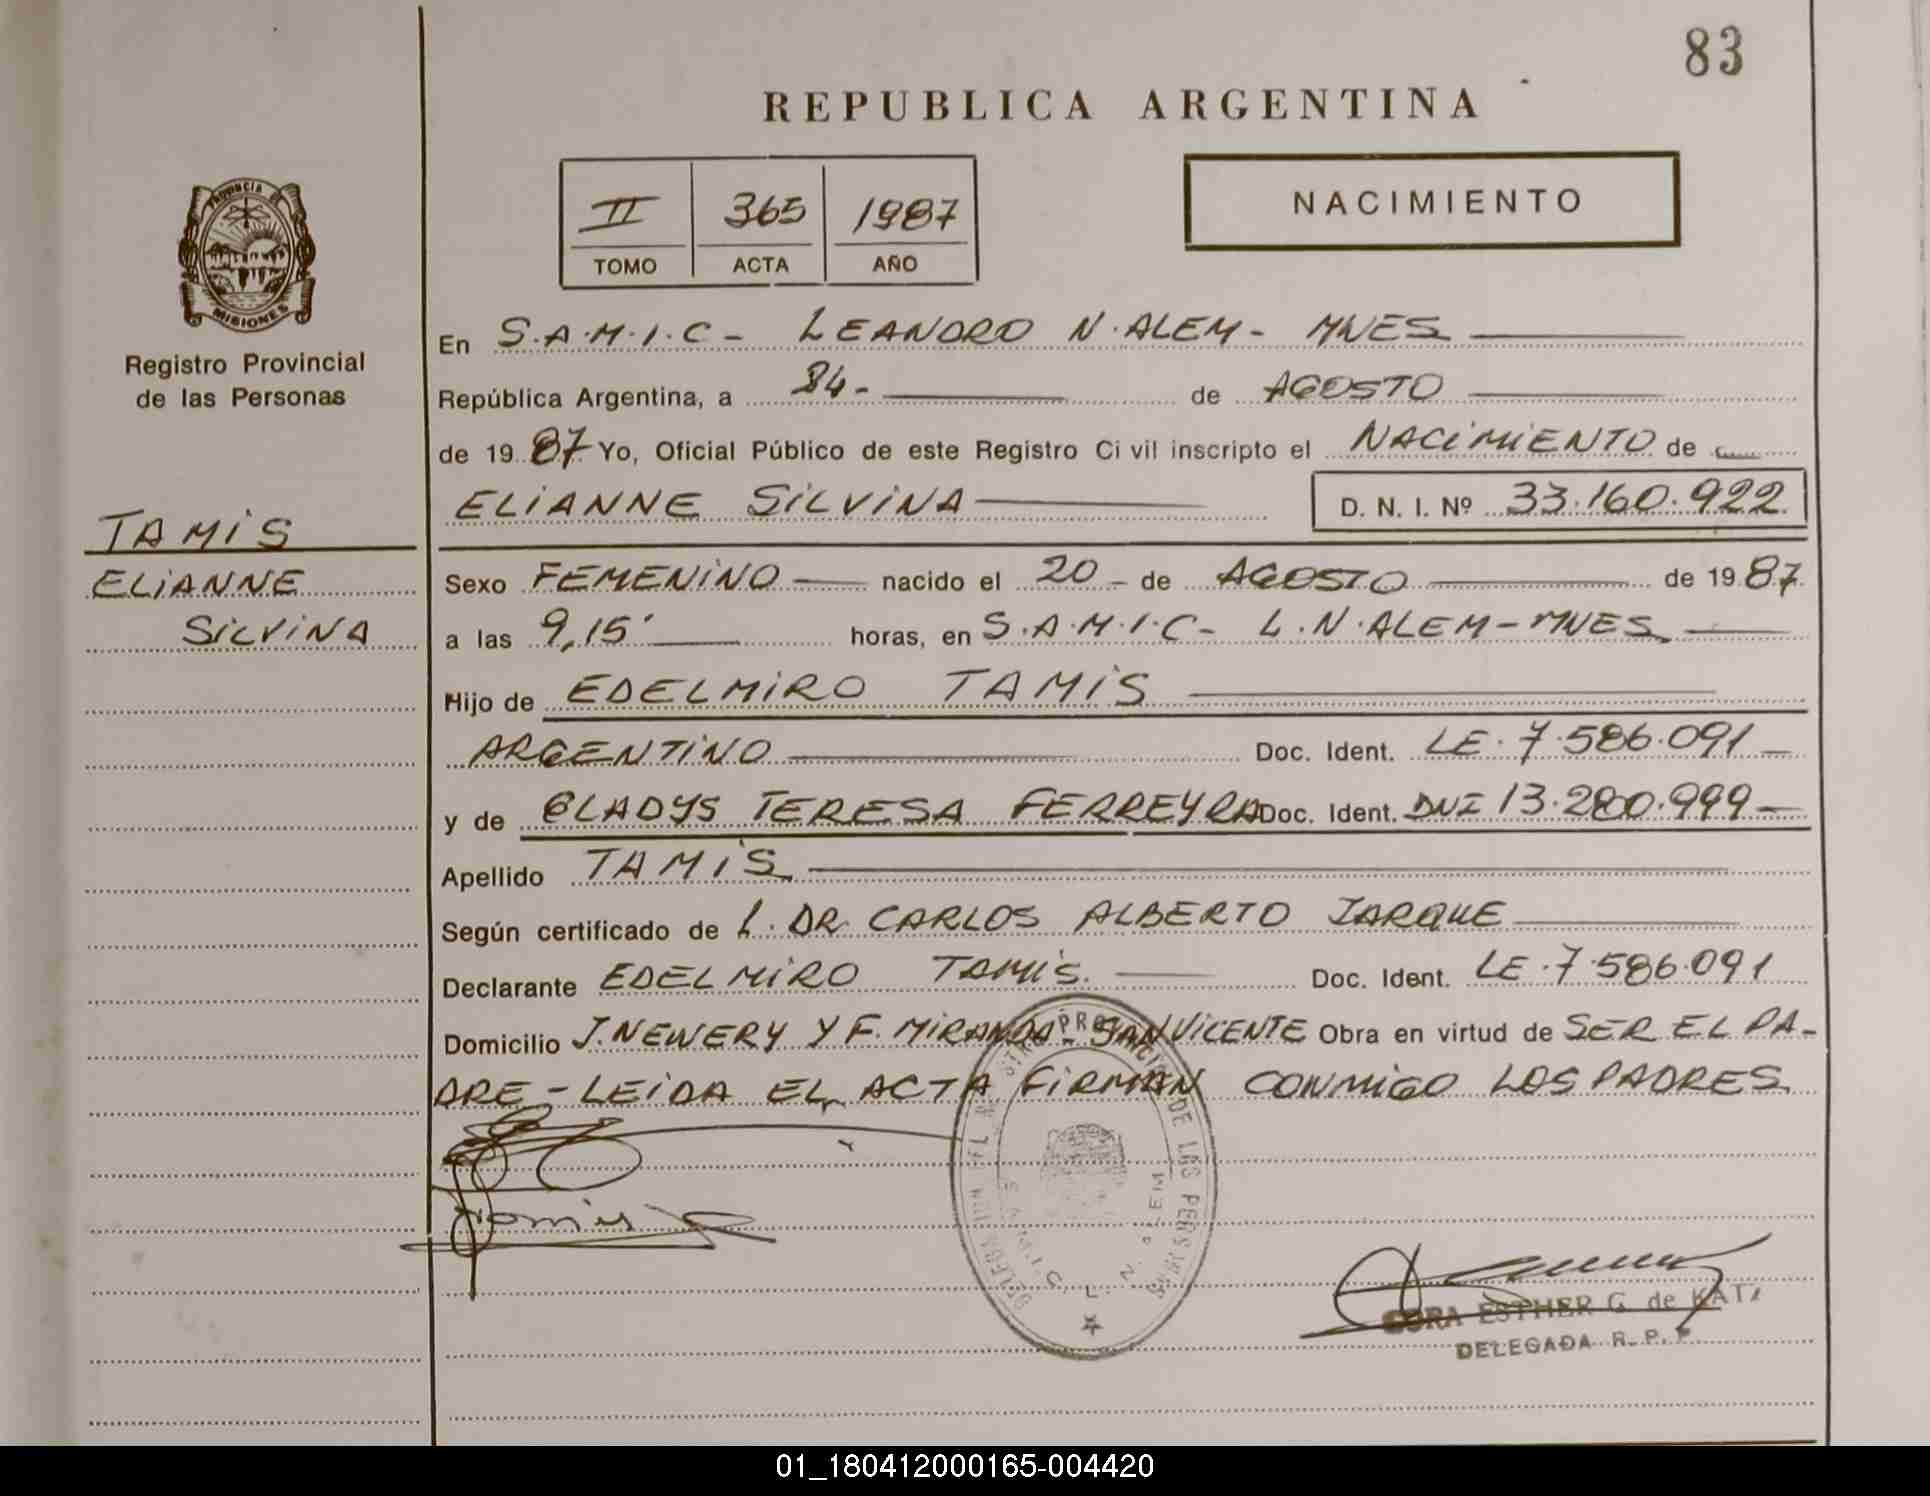 83
REPUBLICA ARGENTINA
II 365 1987
TOMO ACTA AÑO
NACIMIENTO
PROVINCIA DE
MISIONES
Registro Provincial
de las Personas
TAMIS
ELIANNE
SILVINA
En S.A.M.I.C - LEANDRO N. ALEM - MNES
República Argentina, a 24 - de AGOSTO
de 1987 Yo, Oficial Público de este Registro Civil inscripto el NACIMIENTO de
ELIANNE SILVINA D. N. I. Nº 33.160.922
Sexo FEMENINO nacido el 20 - de AGOSTO de 1987
a las 9,15' horas, en S.A.M.I.C - L.N.ALEM - MNES
Hijo de EDELMIRO TAMIS
ARGENTINO Doc. Ident. LE. 7.586.091 -
y de GLADYS TERESA FERREYRA Doc. Ident. DNI 13.280.999 -
Apellido TAMIS
Según certificado de L. DR CARLOS ALBERTO JARQUE
Declarante EDELMIRO TAMIS. Doc. Ident. LE. 7.586.091
Domicilio J. NEWERY Y F. MIRANDA - SAN VICENTE Obra en virtud de SER EL PA-
DRE - LEIDA EL ACTA FIRMAN CONMIGO LOS PADRES
DELEGACION DEL REGISTRO PROVINCIAL DE LAS PERSONAS
S.A.M.I.C L. N. ALEM
Tamis
CORA ESTHER G. de
DELEGADA R. P. P.
01_180412000165-004420